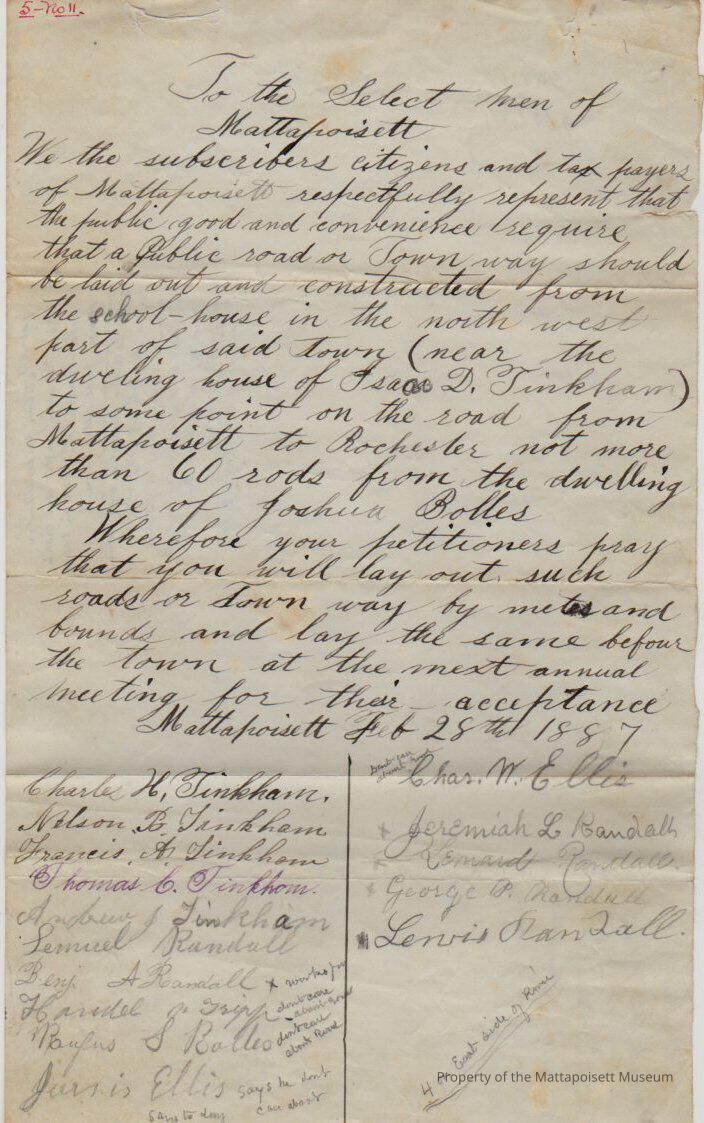 5-No 11.
To the Select men of
Mattapoisett
We the subscribers citizens and tax payers
of Mattapoisett respectfully represent that
the public good and convenience require
that a Public road or Town way should
be laid out and constructed from
the school-house in the north west
part of said Town (near the
dweling house of Isaac D. Tinkham)
to some point on the road from
Mattapoisett to Rochester not more
than 60 rods from the dwelling
house of Joshua Bolles
Wherefore your petitioners pray
that you will lay out such
roads or Town way by metes and
bounds and lay the same befour
the town at the next annual
meeting for their acceptance
Mattapoisett Feb 28th 1887
Charles H, Tinkham.
Nelson B. Tinkham
Francis. A. Tinkham
Thomas C. Tinkham.
Andrew J Tinkham
Lemuel Randall
Benj A Randall x
dont care
about
Rufus S Bolles dont care
about
Jarvis Ellis says he dont
care about
says to
Char. W. Ellis
x Jeremiah L Randall
x Randall.
x George P. Randall
Lewis Randall.
4 East side of River
Property of the Mattapoisett Museum